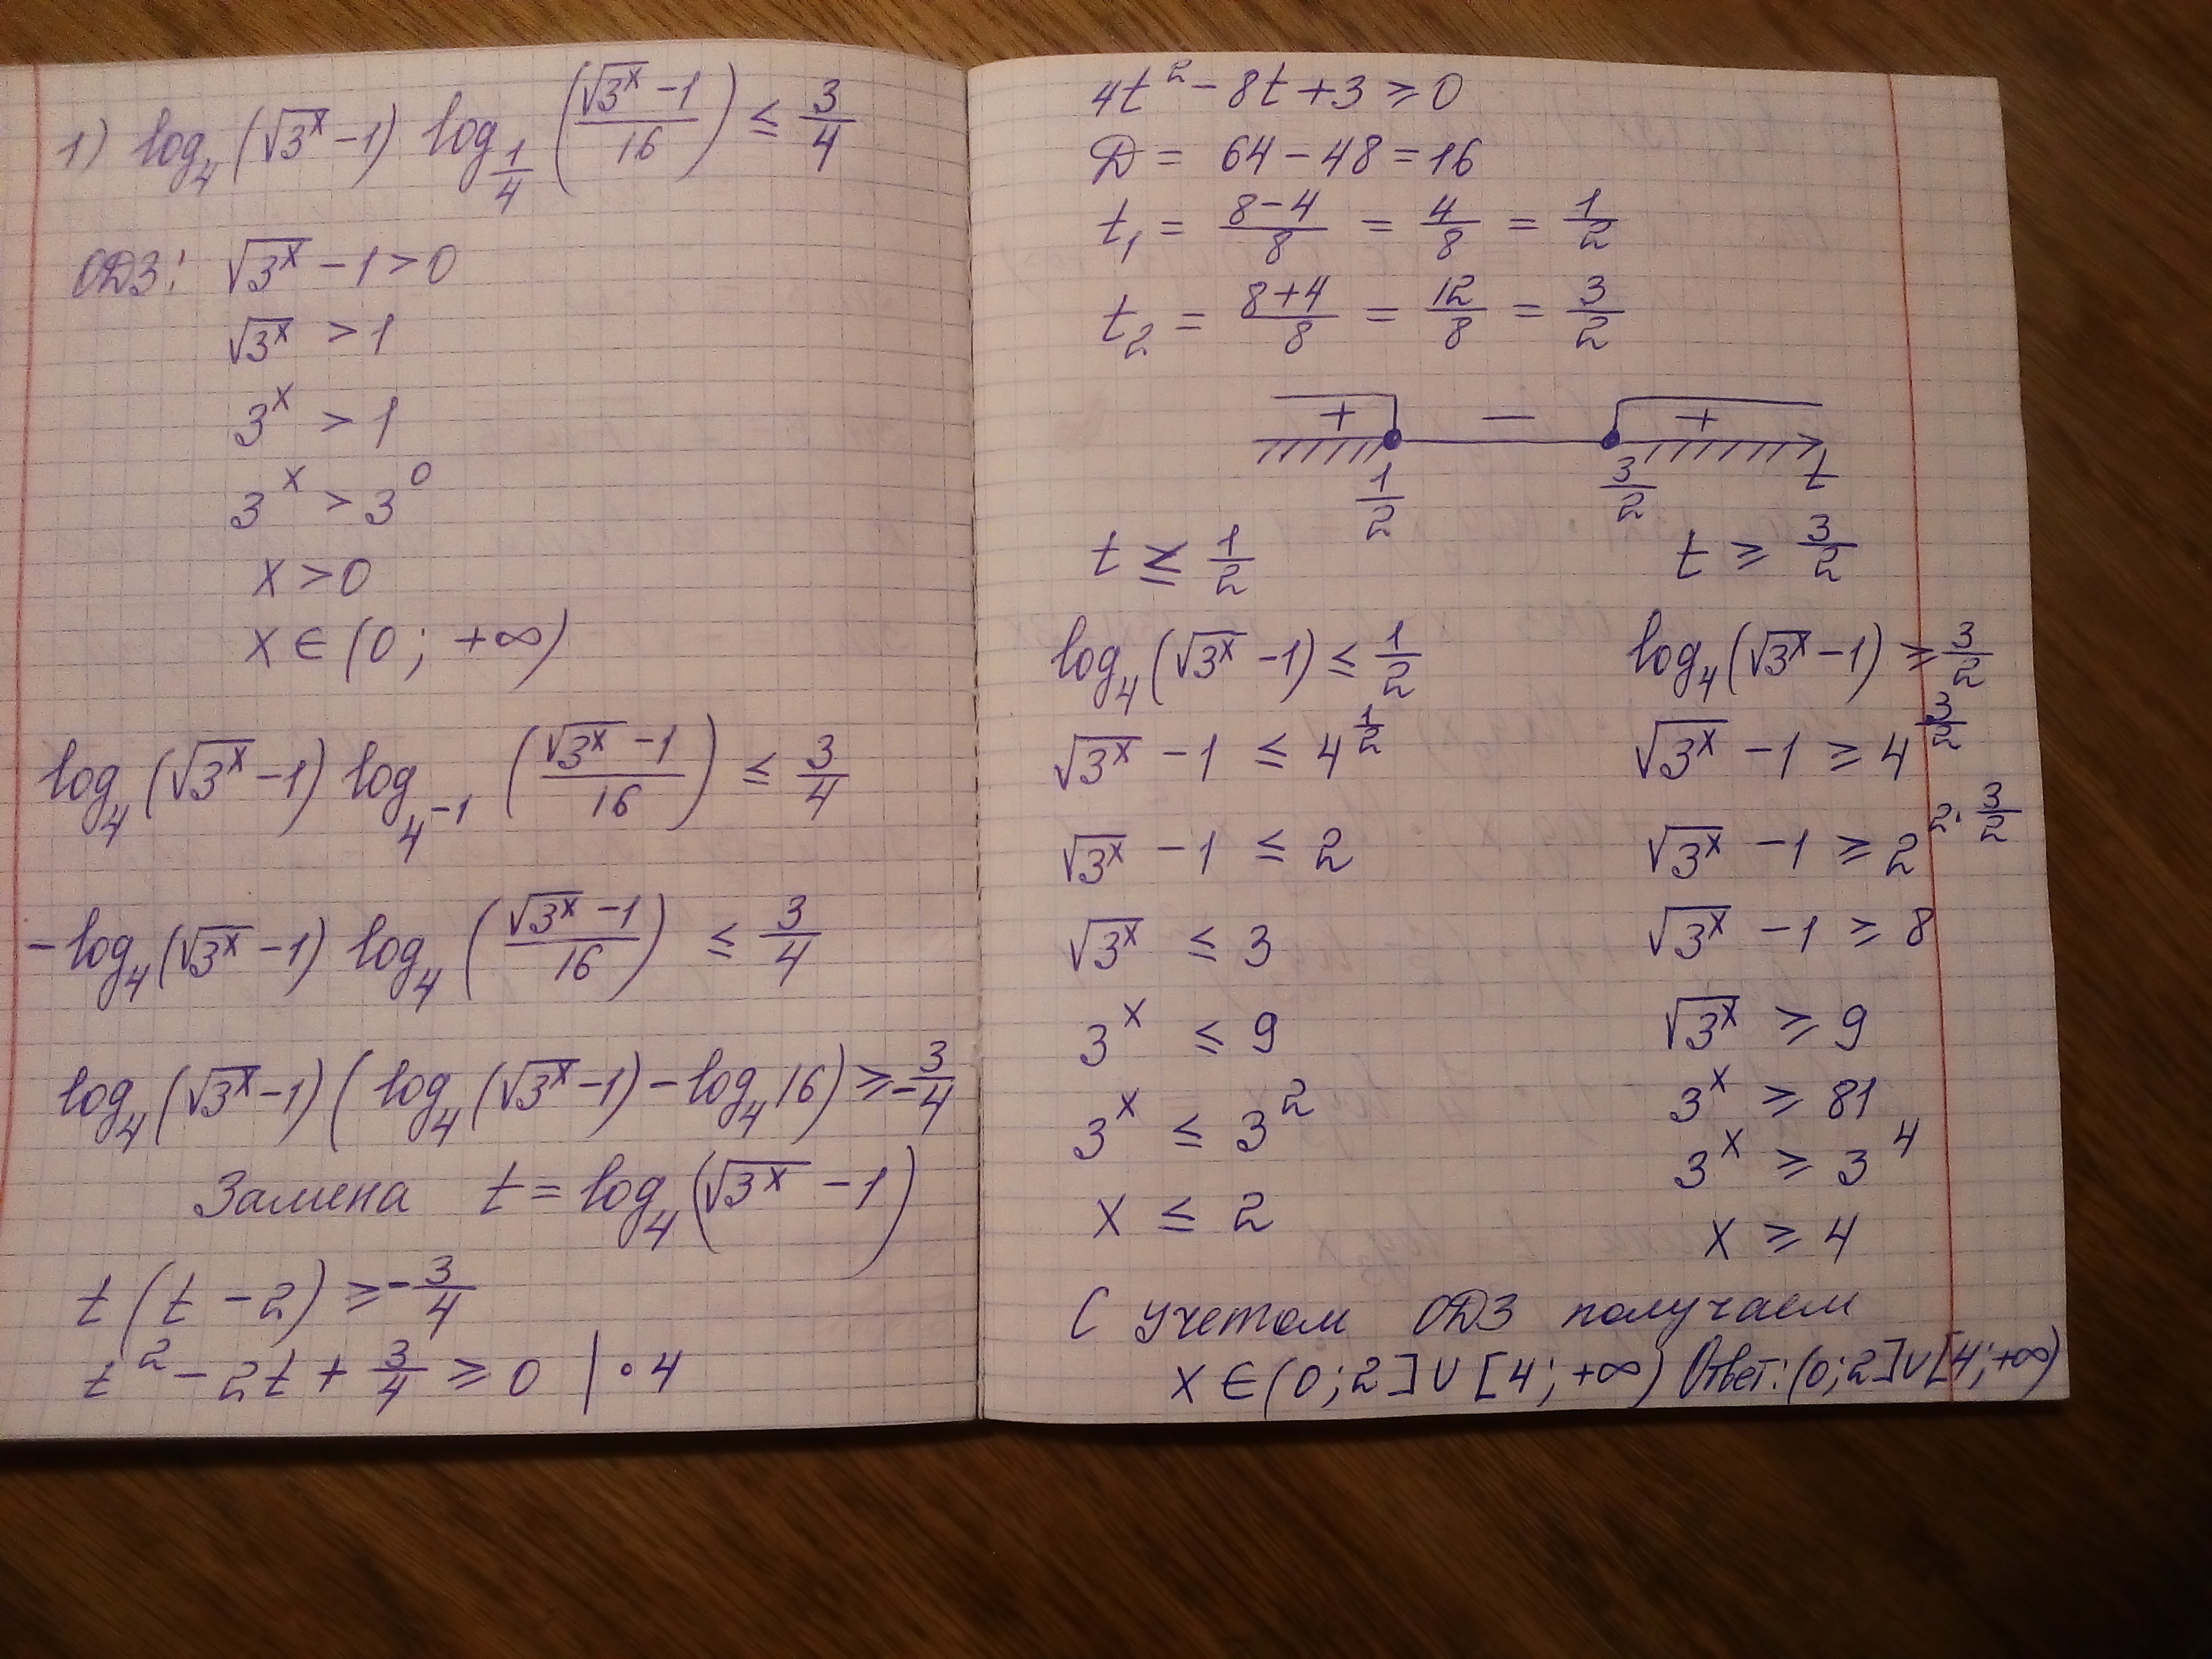 1) log₄(√3ˣ − 1) log_{1/4} ((√3ˣ − 1)/16) ≤ 3/4
ОДЗ: √3ˣ − 1 > 0
√3ˣ > 1
3ˣ > 1
3ˣ > 3⁰
x > 0
x ∈ (0; +∞)
log₄(√3ˣ − 1) log_{4⁻¹} ((√3ˣ − 1)/16) ≤ 3/4
− log₄(√3ˣ − 1) log₄ ((√3ˣ − 1)/16) ≤ 3/4
log₄(√3ˣ − 1)(log₄(√3ˣ − 1) − log₄16) ≥ −3/4
Замена t = log₄(√3ˣ − 1)
t(t − 2) ≥ −3/4
t² − 2t + 3/4 ≥ 0 | • 4
4t² − 8t + 3 ≥ 0
D = 64 − 48 = 16
t₁ = (8 − 4)/8 = 4/8 = 1/2
t₂ = (8 + 4)/8 = 12/8 = 3/2
+ − +
1/2 3/2 t
t ≤ 1/2
log₄(√3ˣ − 1) ≤ 1/2
√3ˣ − 1 ≤ 4^{1/2}
√3ˣ − 1 ≤ 2
√3ˣ ≤ 3
3ˣ ≤ 9
3ˣ ≤ 3²
x ≤ 2
t ≥ 3/2
log₄(√3ˣ − 1) ≥ 3/2
√3ˣ − 1 ≥ 4^{3/2}
√3ˣ − 1 ≥ 2^{2·3/2}
√3ˣ − 1 ≥ 8
√3ˣ ≥ 9
3ˣ ≥ 81
3ˣ ≥ 3⁴
x ≥ 4
С учетом ОДЗ получаем
x ∈ (0; 2] ∪ [4; +∞) Ответ: (0; 2] ∪ [4; +∞)